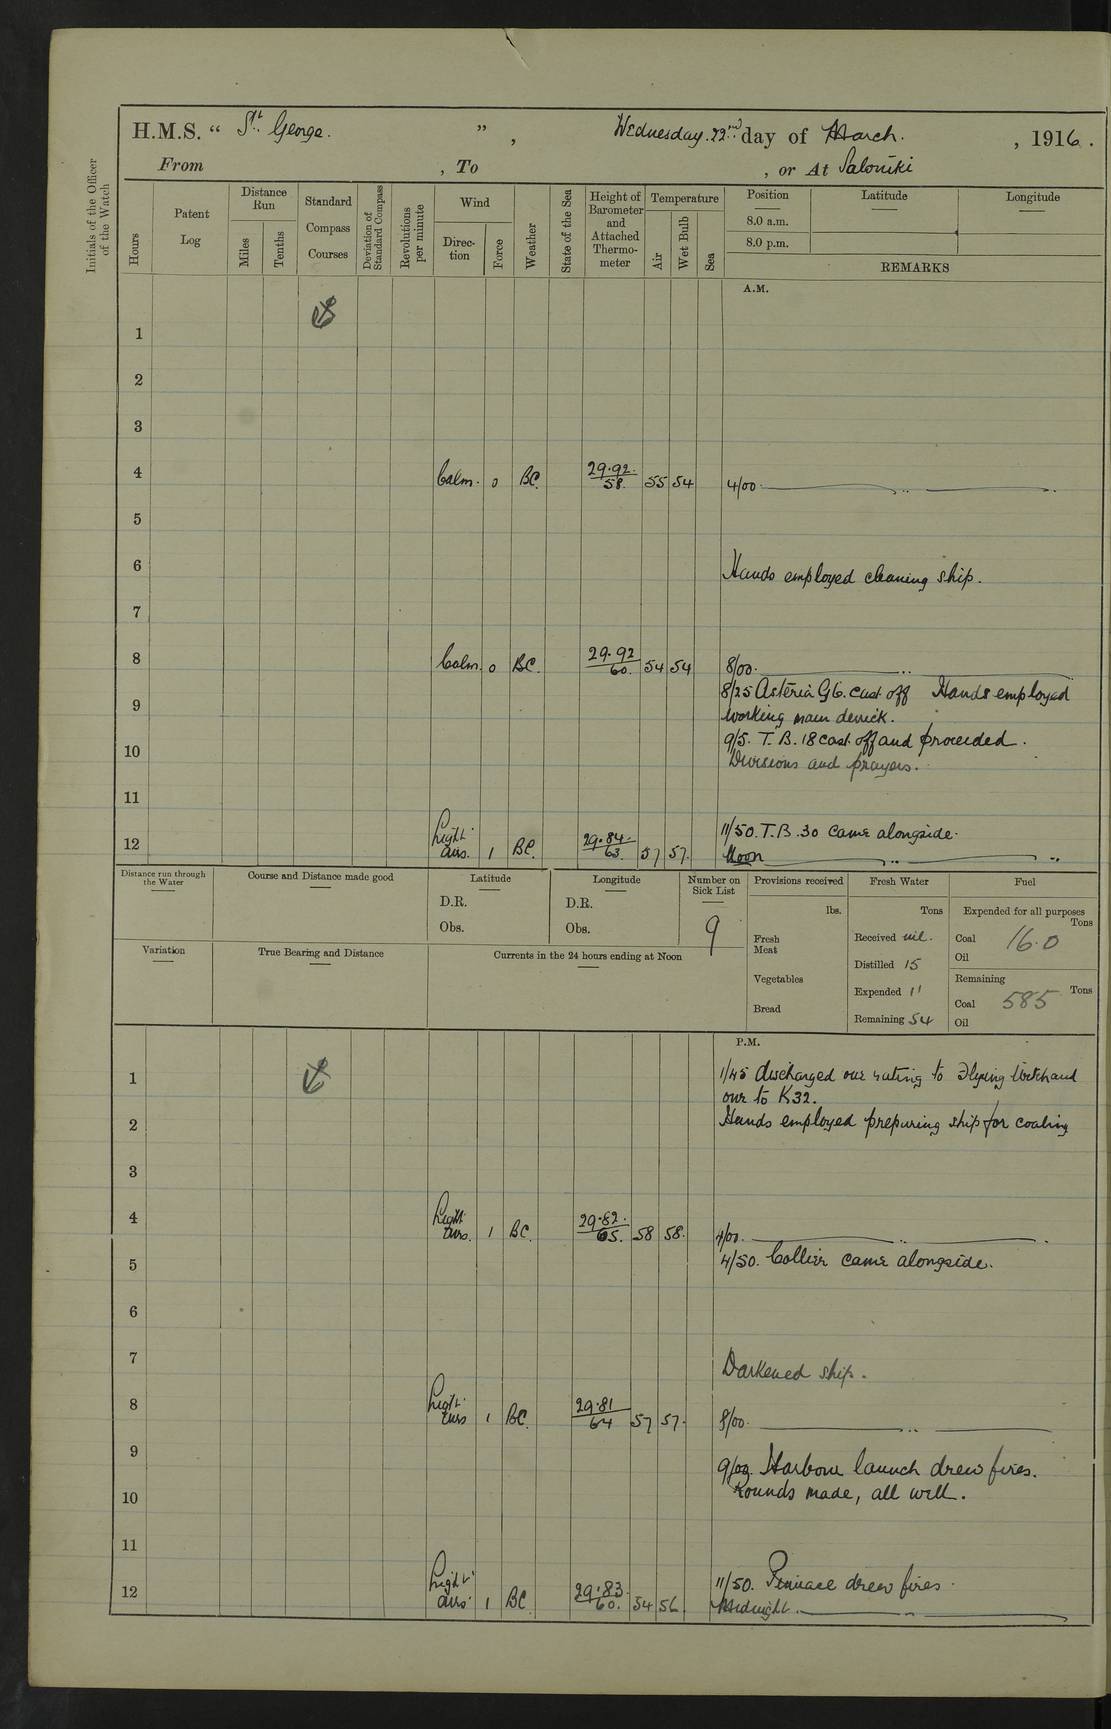 H.M.S. " St. George. " , Wednesday. 22nd day of March. , 1916.
From , To , or At Saloniki
Initials of the Officer of the Watch
Hours
Patent Log
Distance Run
Miles
Tenths
Standard Compass Courses
Deviation of Standard Compass
Revolutions per minute
Wind
Direc-tion
Force
Weather
State of the Sea
Height of Barometer and Attached Thermo-meter
Temperature
Air
Wet Bulb
Sea
Position Latitude Longitude
8.0 a.m.
8.0 p.m.
REMARKS
A.M.
1
2
3
4 Calm. 0 BC. 29.92. 58. 55 54 4/00. ———— ,, ———— ,,
5
6 Hands employed cleaning ship.
7
8 Calm. 0 BC. 29.92 60. 54 54 8/00. ———— ,, ————
8/25 Asteria G6. cast off Hands employed
9 working main derrick.
9/5. T.B. 18 cast off and proceeded.
10 Divisions and prayers.
11
11/50. T.B. 30 came alongside.
12 Light airs. 1 BC. 29.84. 63. 57 57. Noon ———— ,, ———— ,,
Distance run through the Water
Course and Distance made good
Latitude
D.R.
Obs.
Longitude
D.R.
Obs.
Number on Sick List
9
Provisions received
lbs.
Fresh Meat
Vegetables
Bread
Fresh Water
Tons
Received nil.
Distilled 15
Expended 11
Remaining 54
Fuel
Expended for all purposes
Tons
Coal 16.0
Oil
Remaining
Tons
Coal 585
Oil
Variation
True Bearing and Distance
Currents in the 24 hours ending at Noon
P.M.
1 1/45 discharged one rating to Flying and
one to K32.
2 Hands employed preparing ship for coaling
3
4 Light airs. 1 BC. 29.82. 65. 58 58. 4/00. ———— ,, ———— .
5 4/50. Collier came alongside.
6
7 Darkened ship.
8 Light airs 1 BC. 29.81 64 57 57. 8/00. ———— ,, ————
9 9/00. Harbour launch drew fires.
10 Rounds made, all well.
11
11/50. Pinnace drew fires.
12 Light airs. 1 BC 29.83. 60. 54 56. Midnight. ———— ,, ————